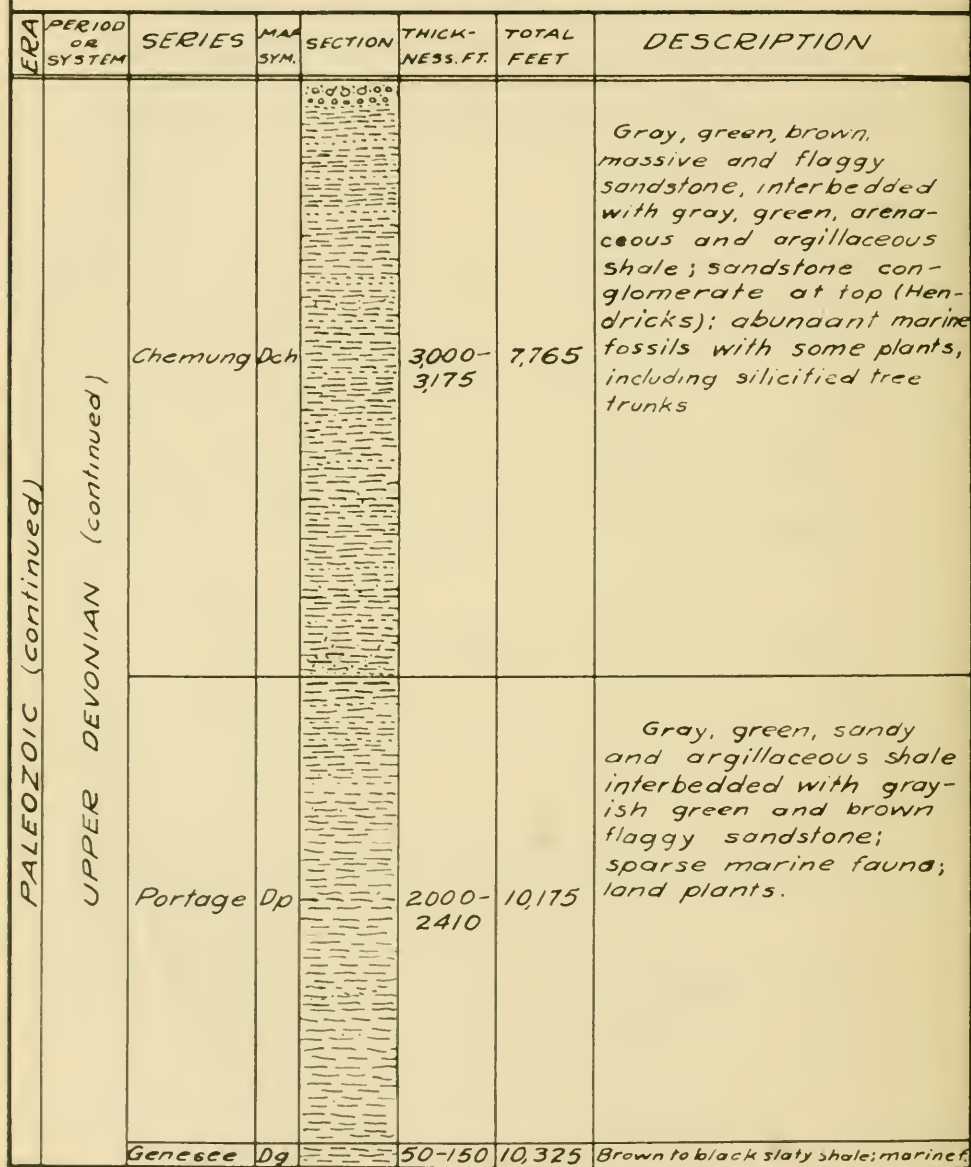 ERA
PERIOD
OR
SYSTEM
SERIES
MAP
SYM.
SECTION
THICK-
NESS. FT.
TOTAL
FEET
DESCRIPTION
PALEOZOIC (continued)
UPPER DEVONIAN (continued)
Chemung
Dch
3,000-
3,175
7,765
Gray, green, brown,
massive and flaggy
sandstone, interbedded
with gray, green, arena-
ceous and argillaceous
shale; sandstone con-
glomerate at top (Hen-
dricks); abundant marine
fossils with some plants,
including silicified tree
trunks
Portage
Dp
2000-
2410
10,175
Gray, green, sandy
and argillaceous shale
interbedded with gray-
ish green and brown
flaggy sandstone;
sparse marine fauna;
land plants.
Genesee
Dg
50-150
10,325
Brown to black slaty shale; marine f.